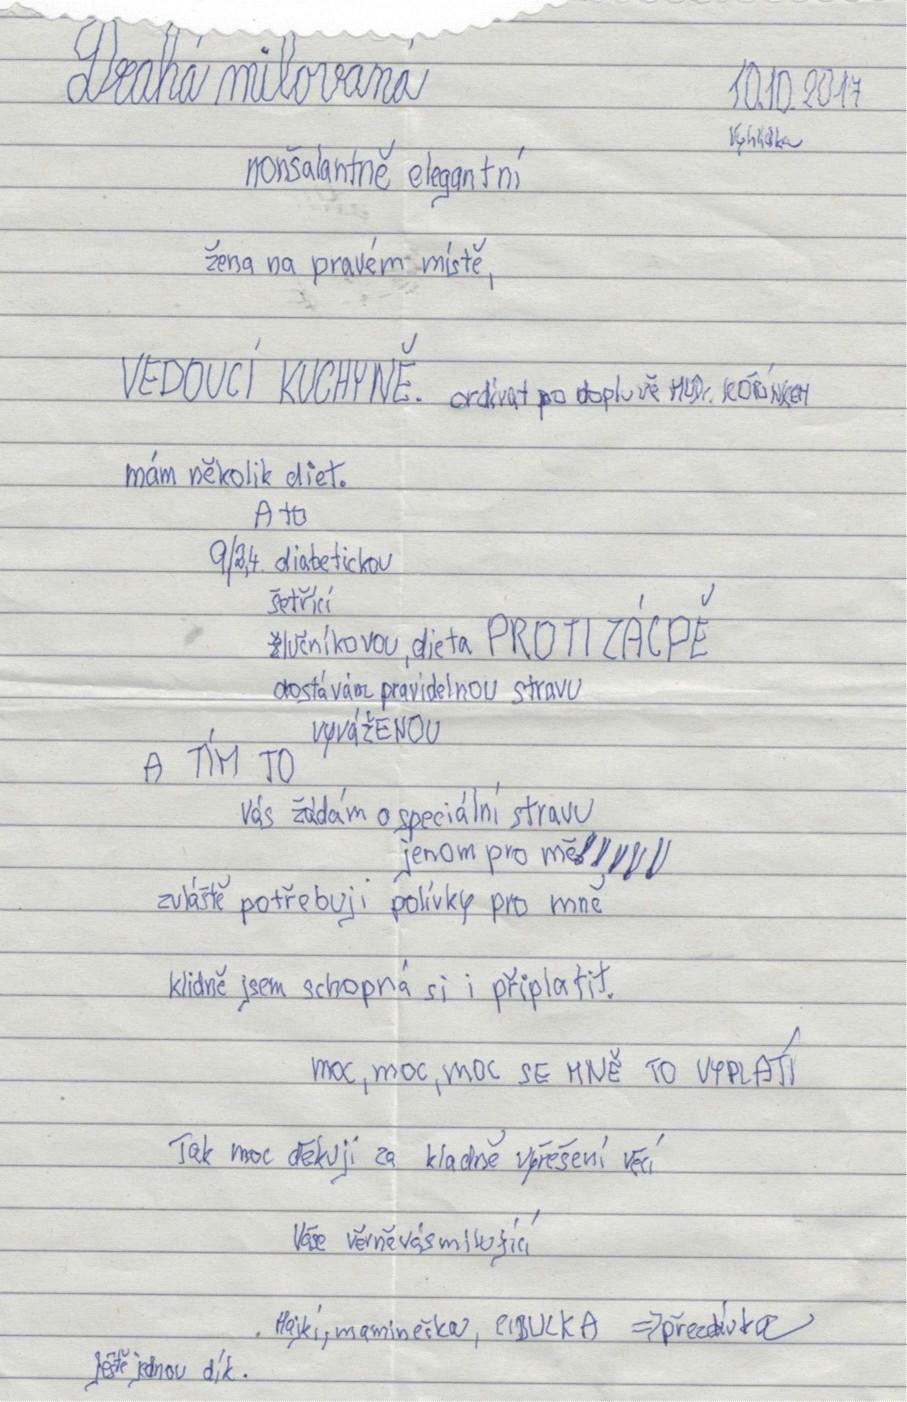 Drahá milovaná
10.10.2017
Vyhlídka
nonšalantně elegantní
žena na pravém místě,
VEDOUCÍ KUCHYNĚ. po MUDr. KOŘÍNKEM
mám několik diet.
A to
9/3,4. diabetickou
šetřící
žlučníkovou, dieta PROTI ZÁCPĚ
dostávám pravidelnou stravu
vyváŽENOU
A TÍM TO
Vás žádám o speciální stravu
jenom pro mě!!!!!!
zvláště potřebuji polívky pro mně
klidně jsem schopná si i připlatit.
moc, moc, moc SE MNĚ TO VYPLATÍ
Tak moc děkuji za kladně vyřešení věcí
Vaše věrně vás milující
mamineška, CIBULKA => přezdívka
Ještě jednou dík.